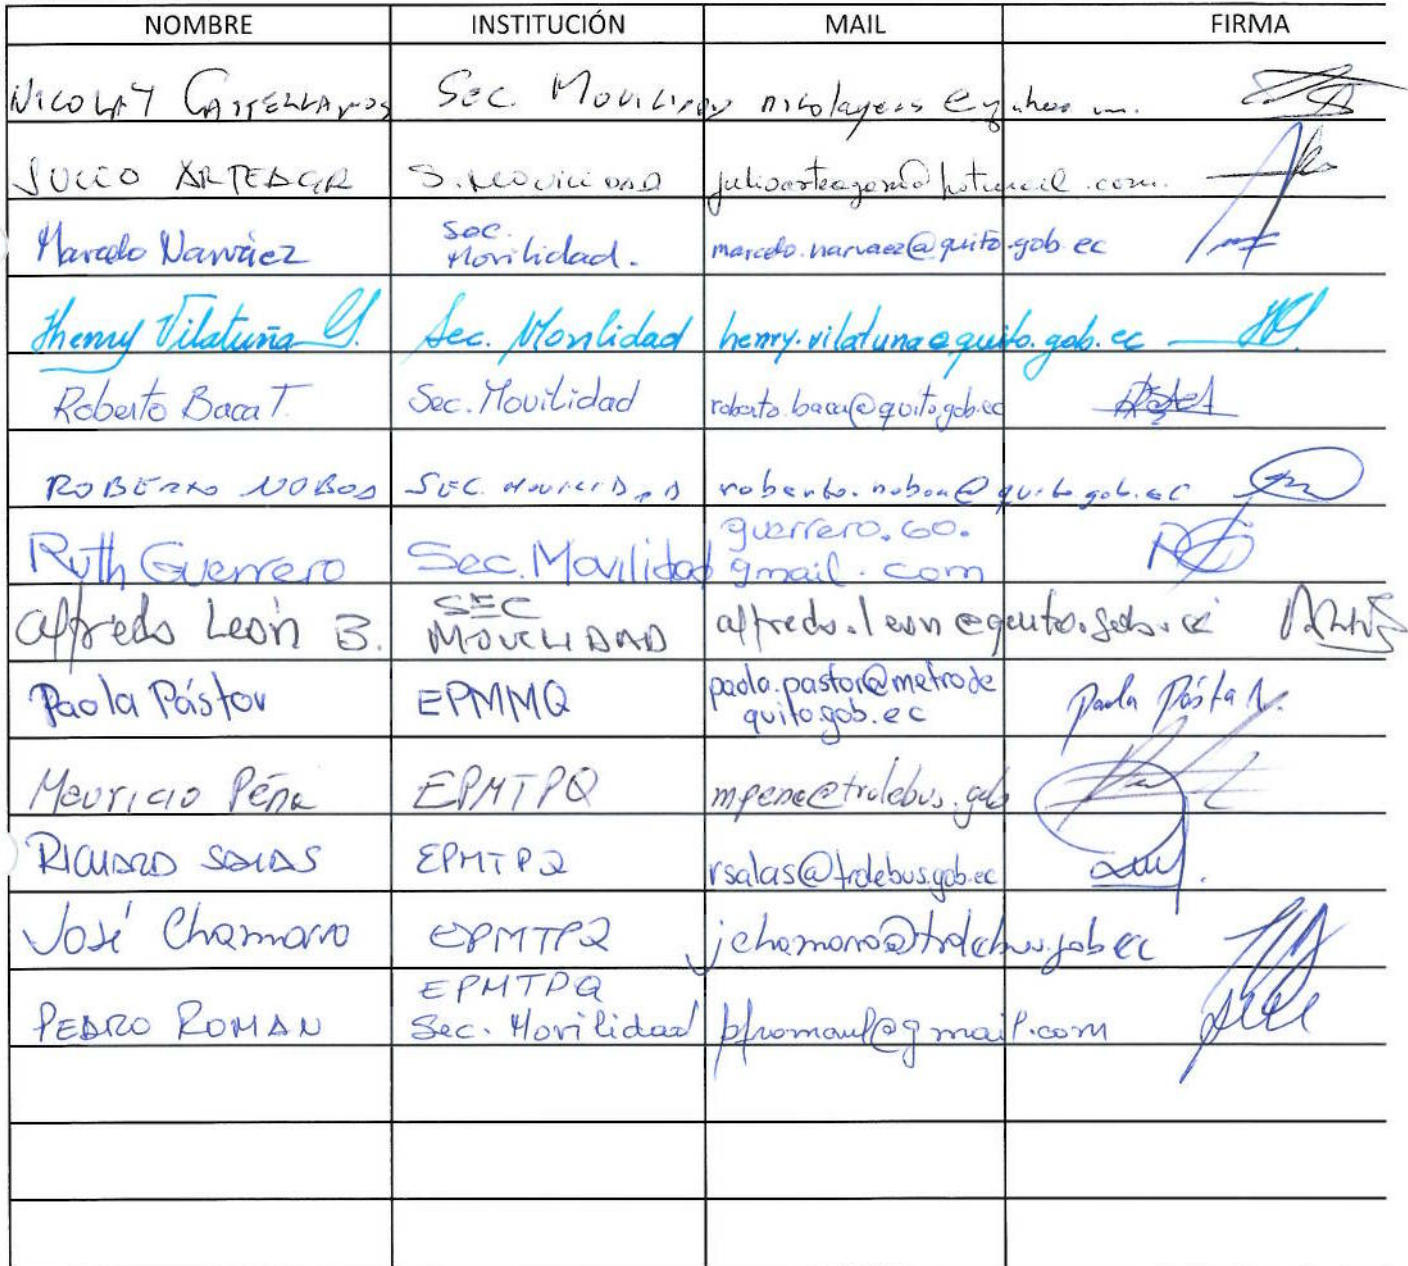 NOMBRE INSTITUCIÓN MAIL FIRMA
NICOLAY CASTELLANOS Sec. MOVILIDAD
JULIO ARTEAGA S. MOVILIDAD
Marcelo Narváez Sec. Movilidad. marcelo.narvaez@quito.gob.ec
Henry Vilatuña G. Sec. Movilidad henry.vilatuna@quito.gob.ec
Roberto Baca T. Sec. Movilidad roberto.baca@quito.gob.ec
ROBERTO NOBOA SEC. MOVILIDAD roberto.noboa@quito.gob.ec
Ruth Guerrero Sec. Movilidad guerrero.60.
gmail.com
Alfredo León B. SEC MOVILIDAD alfredo.leon@quito.gob.ec
Paola Pástor EPMMQ paola.pastor@metrode
quito.gob.ec Paola Pástor
Mauricio Peña EPMTPQ mpena@trolebus.gob
RICHARD SALAS EPMTPQ rsalas@trolebus.gob.ec
José Chamorro EPMTPQ jchamorro@trolebus.gob.ec
EPMTPQ
PEDRO ROMAN Sec. Movilidad